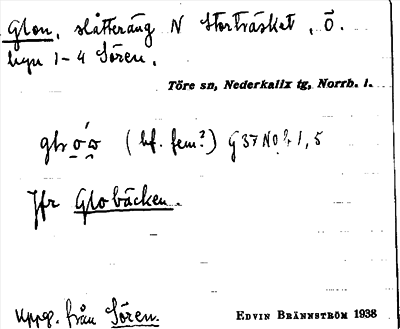 Glon, slåtteräng N Storträsket, Ö.
hgn 1-4 Sören.
Töre sn, Nederkalix tg, Norrb. l.
(bf. fem?) G 37 N 1, 5
Jfr Globäcken.
Uppg. från Sören.
EDVIN BRÄNNSTRÖM 1938